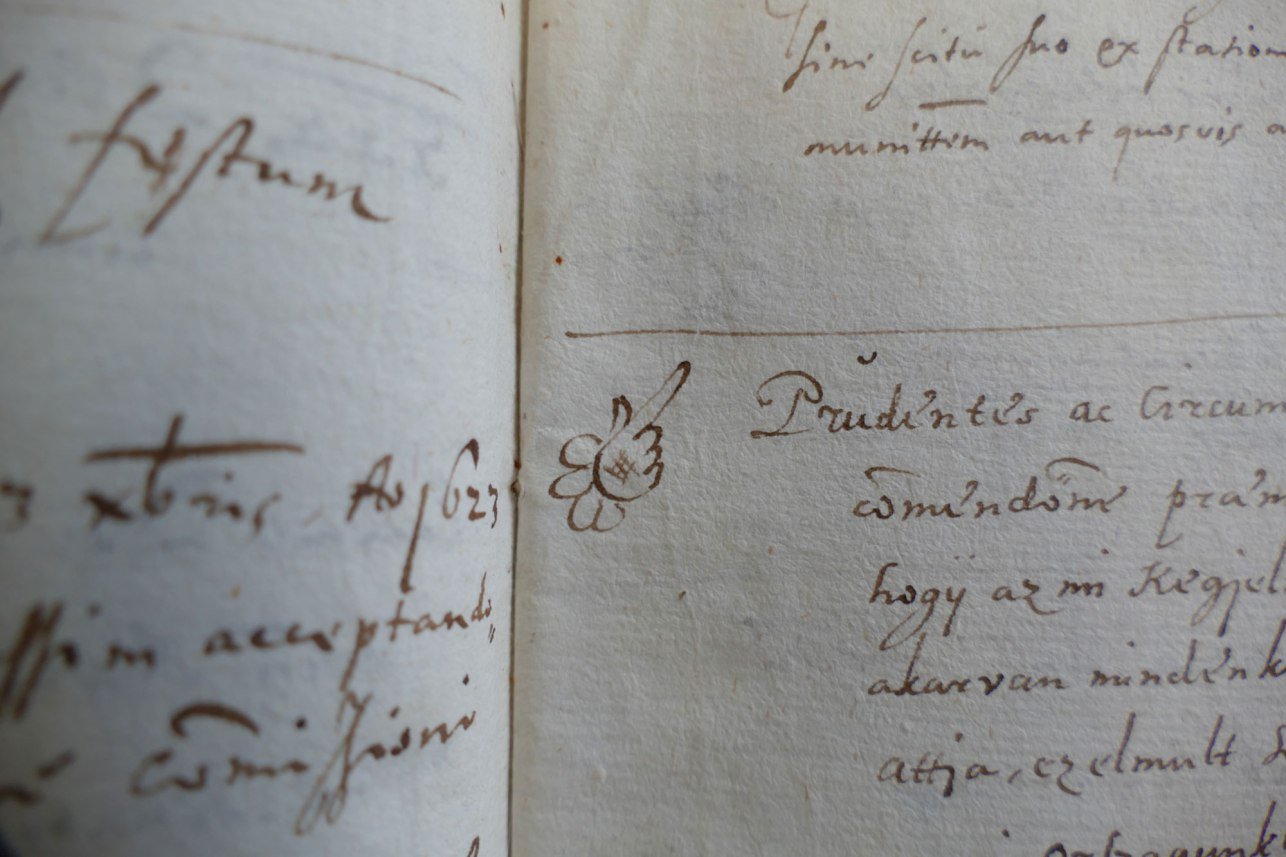 fęstum
xbris, Ao 1623
ssim acceptando,,
com̄issioni
sine scitu suo ex station
munittem aut quosvis
Prudentes ac Circum
com̄endom̄e
hogÿ az mi Kegjel
akarvan mindenk
attja, ez elmult